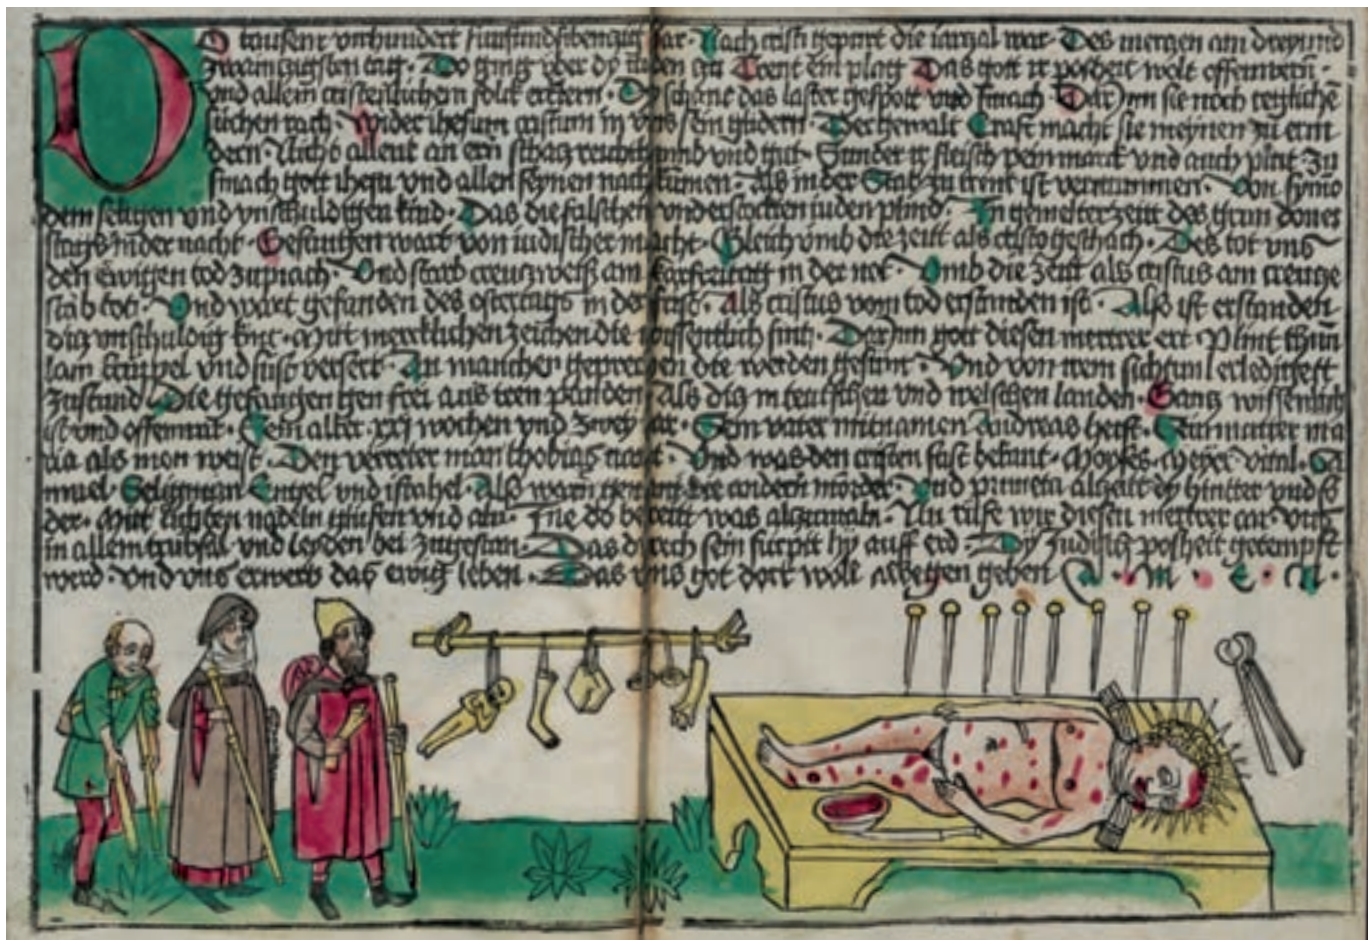 tausent virhundert funfundsibenzig iar · Nach cristi gepurt die iarzal war · Des mergen am dreyund
zwainzigsten tag · Do ging vber dy iuden zu Trent ein plag Das gott ir posheit wolt offenwern ·
vnd allem cristenlichem folck · Dy schant das laster gespott vnd smach Dar sie noch teglichē
suchen rach · Wider ihesum cristum in vns sein glidern · Der gewalt Craft macht sie meynen zu
Nicht allein an ern schatz vnd gut · Sunder ir fleisch pein marck vnd auch plut Zu
smach gott ihesu vnd allen seynen nachkumen · Als in der Stat zu trent ist vernummen · Von symo
dem seligen vnd vnschuldigen kind · Das die falschen vnd erstockten iuden plind · In gemelter zeit des grun doner
stags in der nacht · Gefangen wart von iudischer macht · Gleich vmb die zeitt als cristo geschach · Des tot vns
den Ewigen tod zuprach · Vnd starb creutzweiß am karfreitag in der not · Vmb die zeit als cristus am creutze
starb tot · Vnd wart gefunden des ostertags in der frist · Als cristus vom tod erstanden ist · Also ist erstanden
diz vnschuldig kint · Mit mercklichen zeichen die offentlich sint · Darum gott diesen mertrer ert · Plint
lam kruppel vnd sust versert · An manchen geprechen die werden gesunt · Vnd von irem
Zustund Die gefangen gen frei aus iren panden Als diz in teutschen vnd welschen landen · Ganz
ist vnd offenwar · Sein alter xxj wochen vnd zwey iar · Sein vater mit namen Andreas heist · Sein mutter ma
ria als mon weist · Den verreter man thobias nant · Vnd was den cristen fast bekant · Moyses · Meyer · vital · Sa
muel Seligman Engel vnd israhel · Also warn genant die andern mörder · Vnd prineta
der · Mit nadeln vnd
in allem trubsal vnd leyden bei Zugestan · Das durch sein furpit hy auff erd · Dy Judisch posheit gedempft
werd · vnd vns erwerb das ewig leben · Das vns got dort woll geben A · M · E · N ·